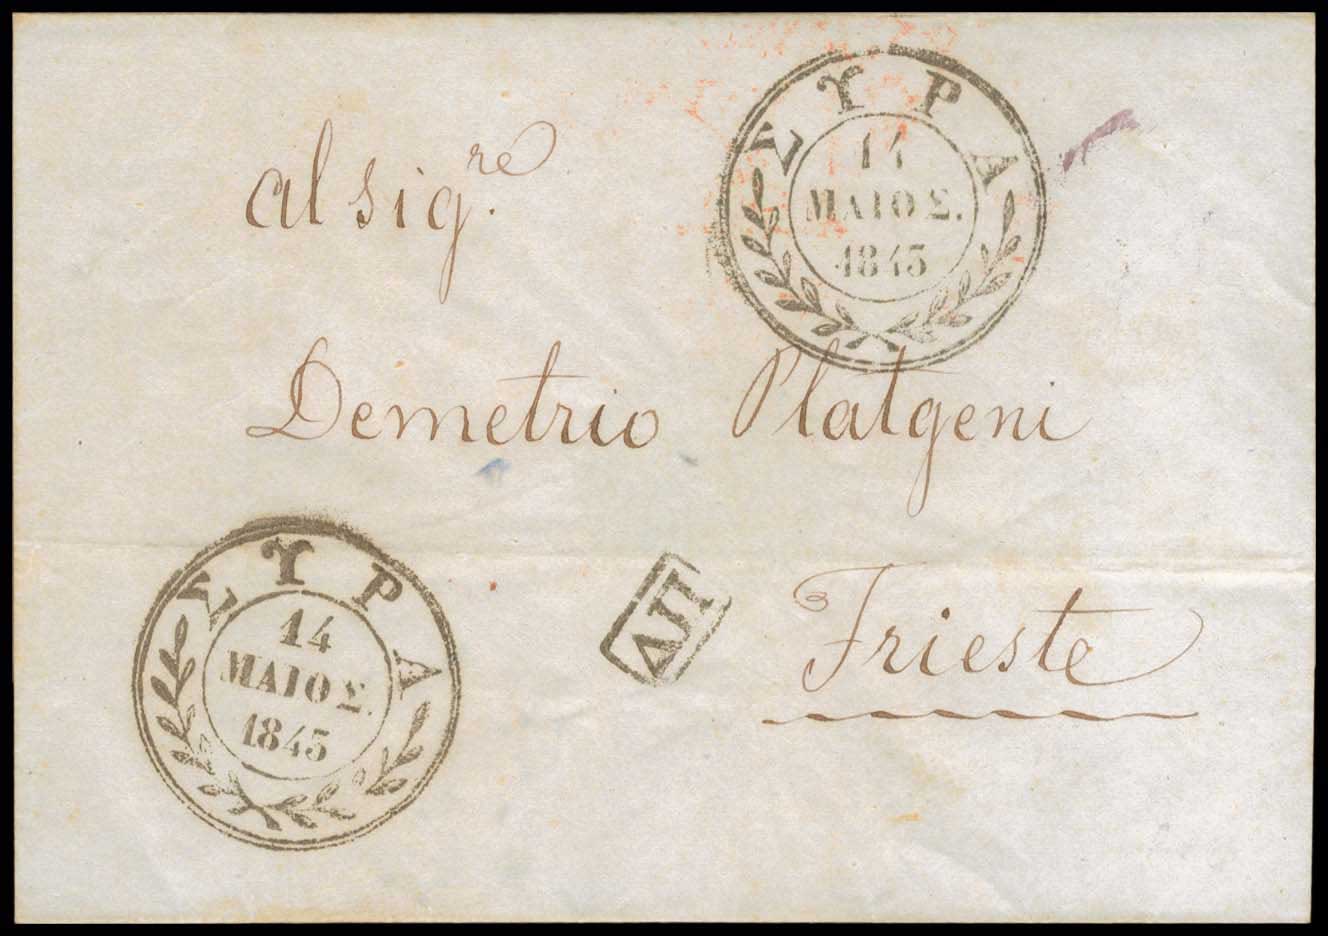 ΣΥΡΑ
14
ΜΑΙΟΣ.
1845
al sig.re
Demetrio Platgeni
ΣΥΡΑ
14
ΜΑΙΟΣ.
1845
ΔΠ
Trieste